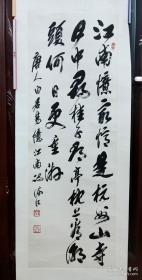 江南憶最憶是杭州山寺
月中尋桂子郡亭枕上看潮
頭何日更重遊
唐人白居易憶江南